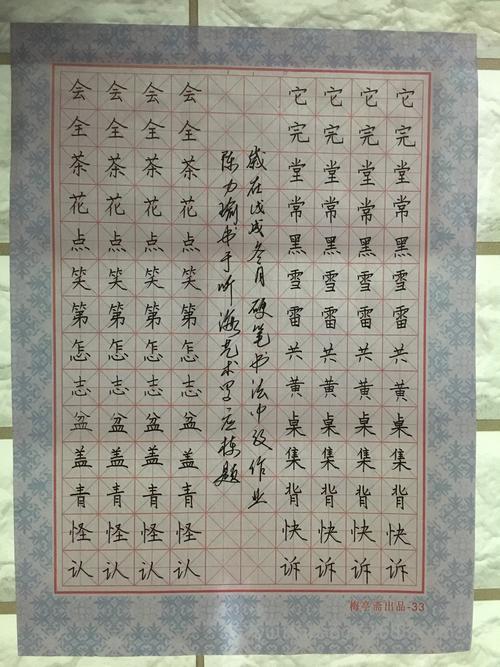 它完堂常黑雪雷共黄桌集背快诉
它完堂常黑雪雷共黄桌集背快诉
它完堂常黑雪雷共黄桌集背快诉
它完堂常黑雪雷共黄桌集背快诉
嵗在戊戌冬月硬笔书法中级作业
陈力瑜书于听海艺术罗应栋题
会全茶花点笑第怎志盆盖青怪认
会全茶花点笑第怎志盆盖青怪认
会全茶花点笑第怎志盆盖青怪认
会全茶花点笑第怎志盆盖青怪认
梅亭斋出品-33